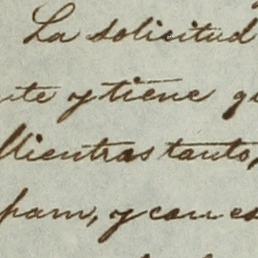 La solicitud
te y tiene
Mientras tanto,
pam, y con es